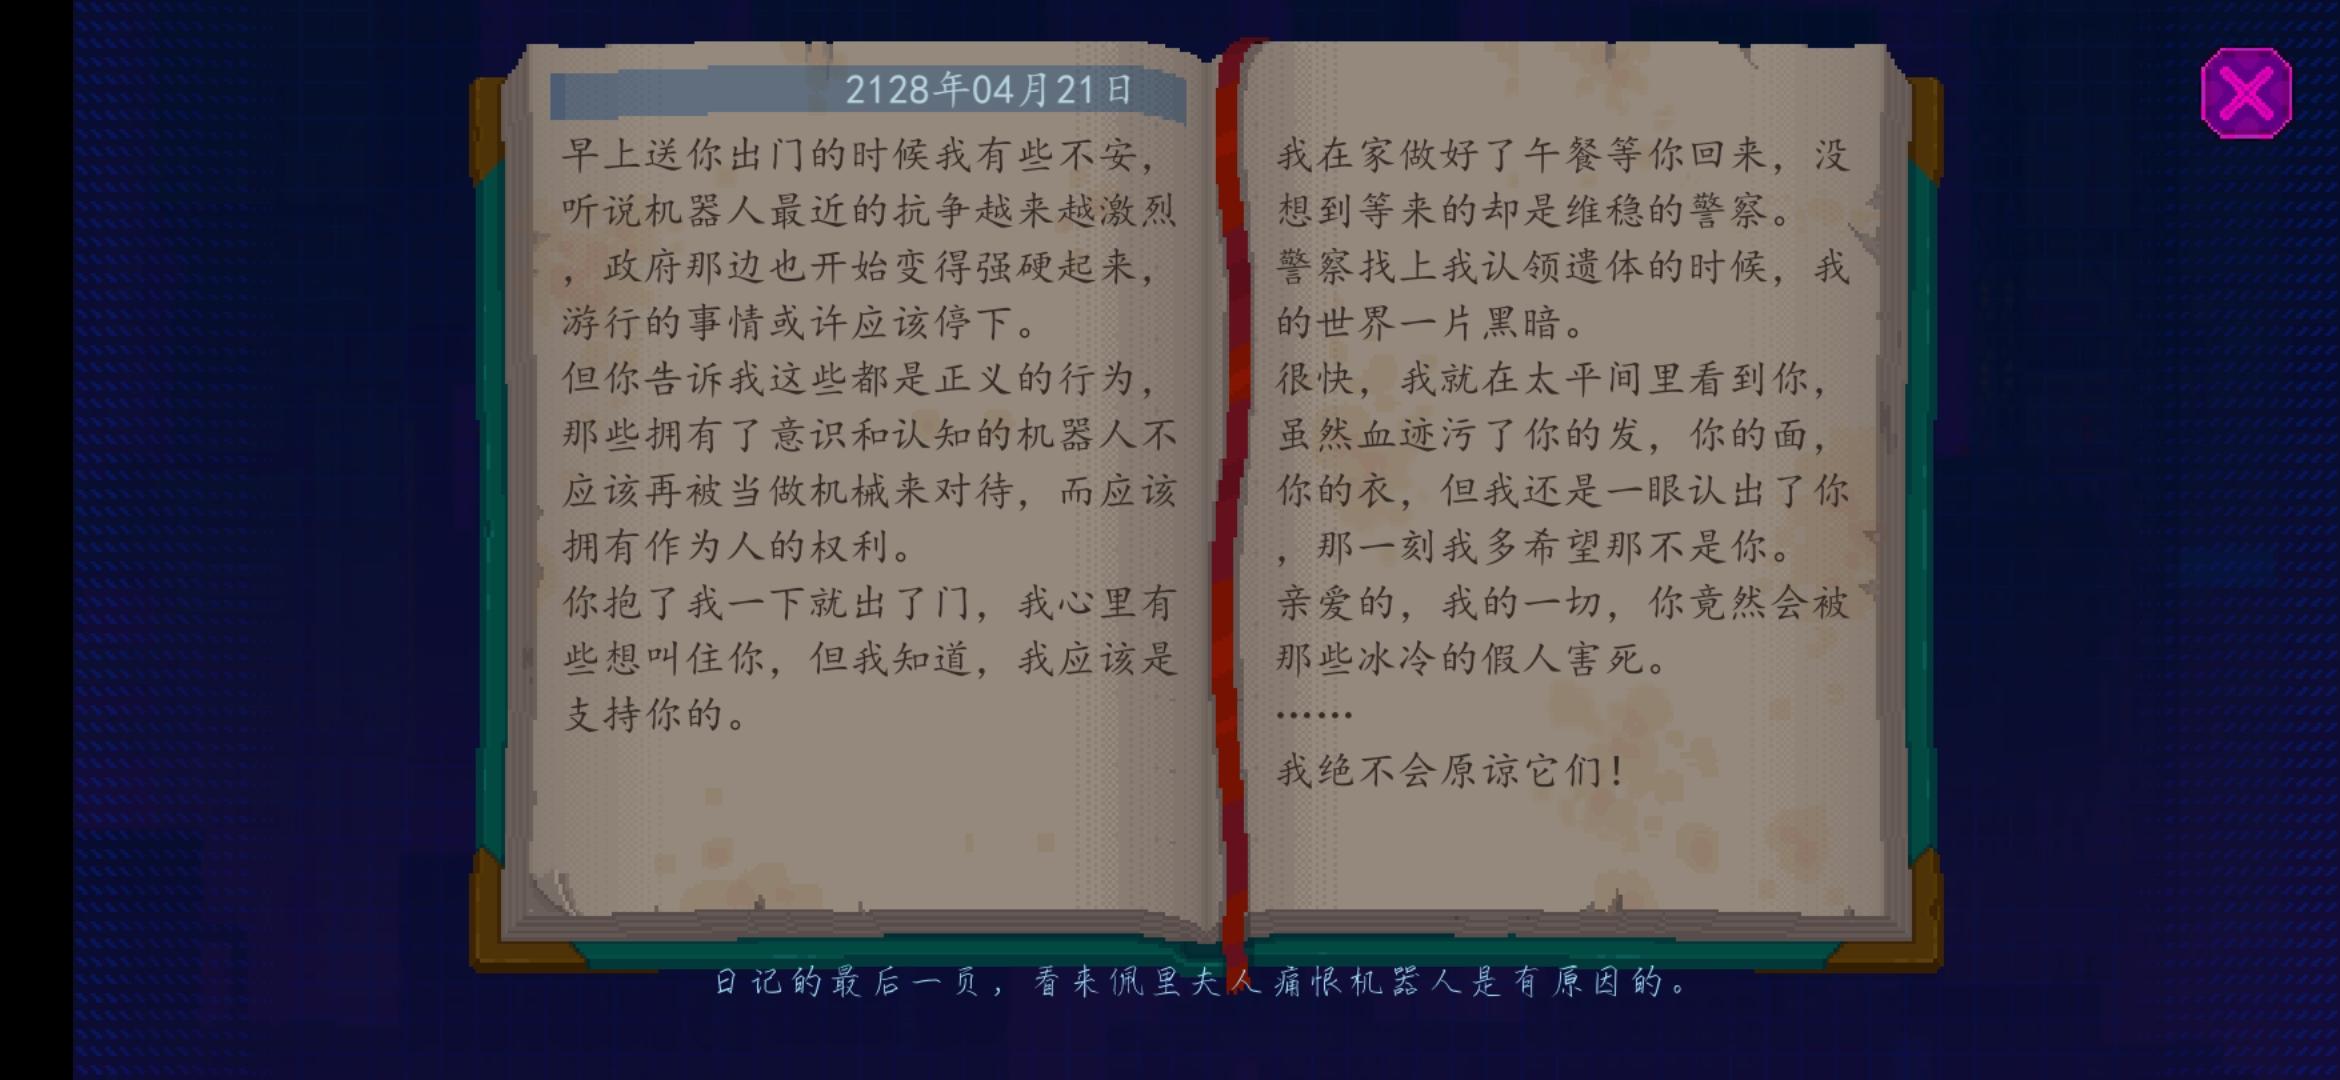 2128年04月21日
早上送你出门的时候我有些不安，
听说机器人最近的抗争越来越激烈
，政府那边也开始变得强硬起来，
游行的事情或许应该停下。
但你告诉我这些都是正义的行为，
那些拥有了意识和认知的机器人不
应该再被当做机械来对待，而应该
拥有作为人的权利。
你抱了我一下就出了门，我心里有
些想叫住你，但我知道，我应该是
支持你的。
我在家做好了午餐等你回来，没
想到等来的却是维稳的警察。
警察找上我认领遗体的时候，我
的世界一片黑暗。
很快，我就在太平间里看到你，
虽然血迹污了你的发，你的面，
你的衣，但我还是一眼认出了你
，那一刻我多希望那不是你。
亲爱的，我的一切，你竟然会被
那些冰冷的假人害死。
……
我绝不会原谅它们！
日记的最后一页，看来佩里夫人痛恨机器人是有原因的。